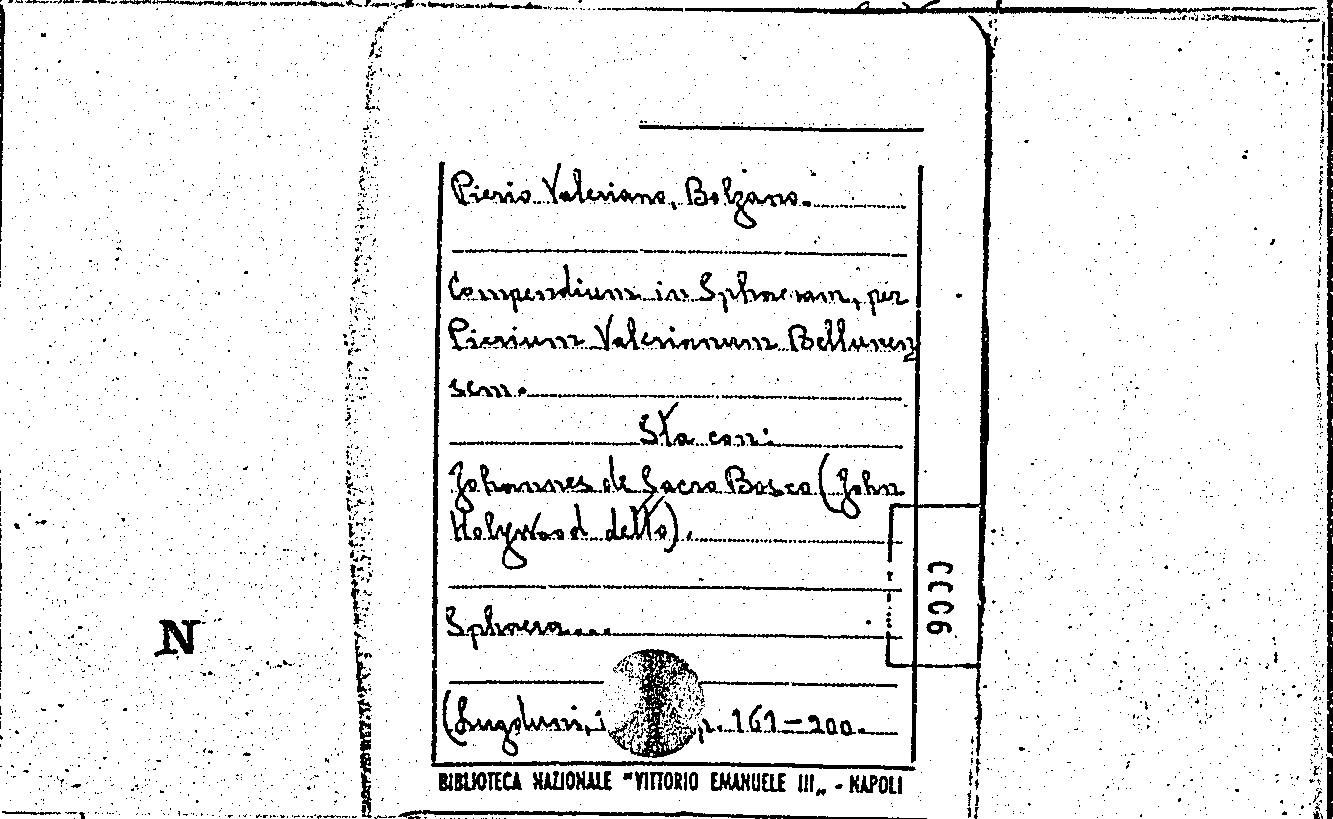 Pierio Valeriano, Bolzano.
Compendium in Sphaeram, per
Pierium Valerianum Bellunen
sem.
Sta con:
Johannes de Sacro Bosco (John
Holywood detto).
Sphaera...
(Lugduni, p. 161-200.
BIBLIOTECA NAZIONALE "VITTORIO EMANUELE III„ - NAPOLI
N